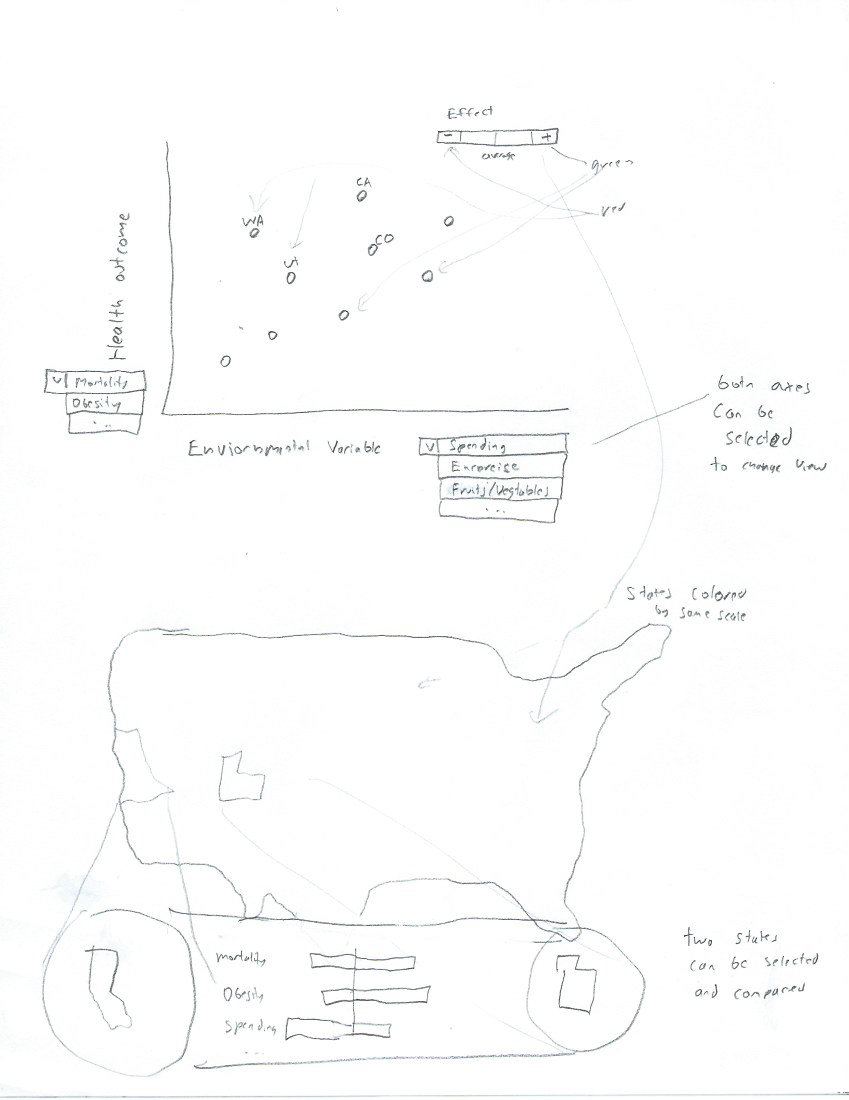 Effect
- +
average
green
red
CA
WA
CO
Health outcome
v Mortality
Obesity
...
Enviornmental Variable
v Spending
Excercise
Fruits/Vegtables
...
both axes
can be
selected
to change view
States colored
by some scale
mortality
Obesity
Spending
...
two states
can be selected
and compared